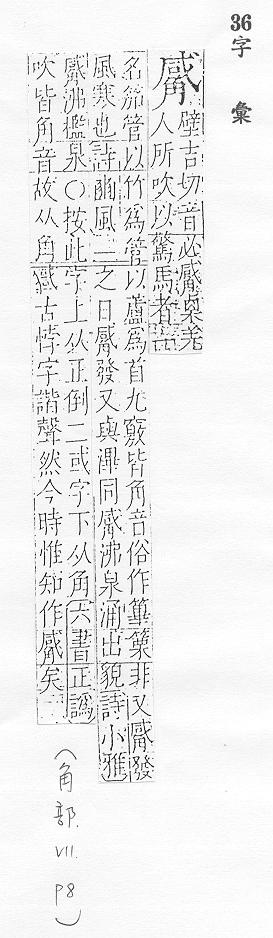 36 字彙
觱 壁吉切音必觱㮚羌
人所吹以驚馬者
名笳管以竹爲管以蘆爲首九竅皆角音俗作篳篥非又觱發
風寒也詩豳風一之日觱發又與㓖同觱沸泉涌出貌詩小雅
觱沸檻泉〇按此字上从正倒二或字下从角六書正譌
吹皆角音故从角 古悖字諧聲然今時惟知作觱矣
(角部. VII. P8)